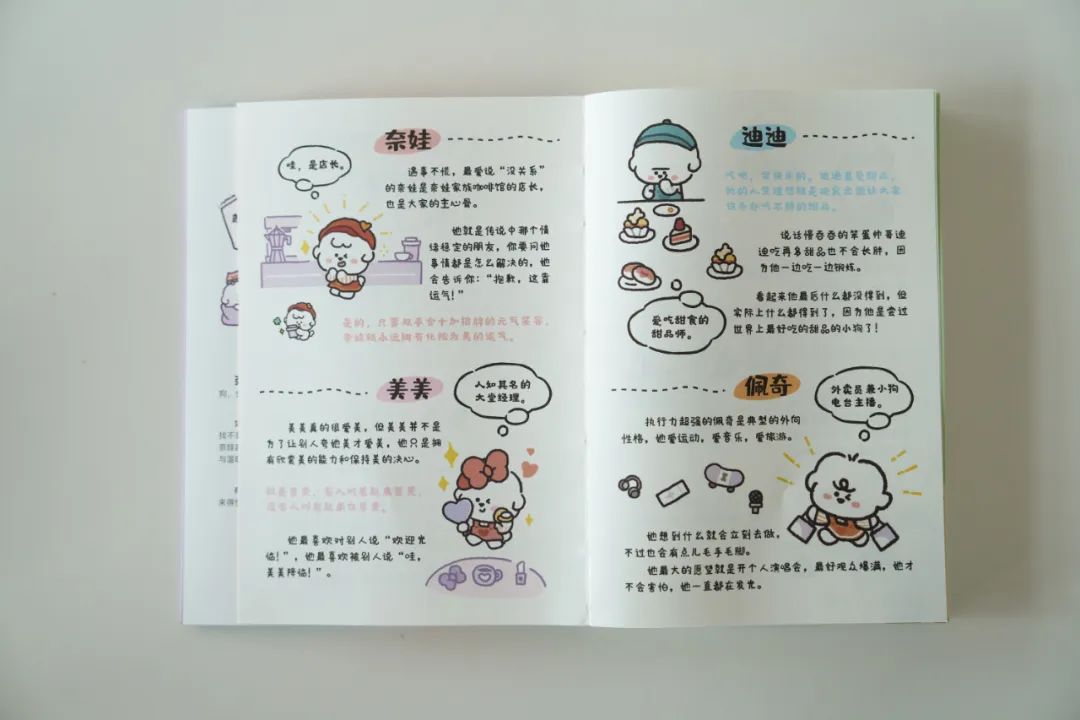 奈娃
哇，是店长。
遇事不慌，最爱说“没关系”
的奈娃是奈娃家族咖啡馆的店长，
也是大家的主心骨。
他就是传说中那个情
绪稳定的朋友，你要问他
事情都是怎么解决的，他
会告诉你：“抱歉，这靠
运气！”
是的，只要双手合十加招牌的元气笑容，
奈娃就永远拥有化险为夷的运气。
美美
人如其名的
大堂经理。
美美真的很爱美，但美美并不是
为了让别人夸她美才爱美，她只是拥
有欣赏美的能力和保持美的决心。
她最喜欢对别人说“欢迎光
临！”，她最喜欢被别人说“哇，
美美降临！”。
迪迪
说话慢吞吞的笨蛋帅哥迪
迪吃再多甜品也不会长胖，因
为他一边吃一边锻炼。
看起来他最后什么都没得到，但
实际上什么都得到了，因为他是尝过
世界上最好吃的甜品的小狗了！
爱吃甜食的
甜品师。
佩奇
外卖员兼小狗
电台主播。
执行力超强的佩奇是典型的外向
性格，他爱运动，爱音乐，爱旅游。
他想到什么就会立刻去做，
不过也会有点儿毛手毛脚。
他最大的愿望就是开个人演唱会，最好观众爆满，他才
不会害怕，他一直都在发光。